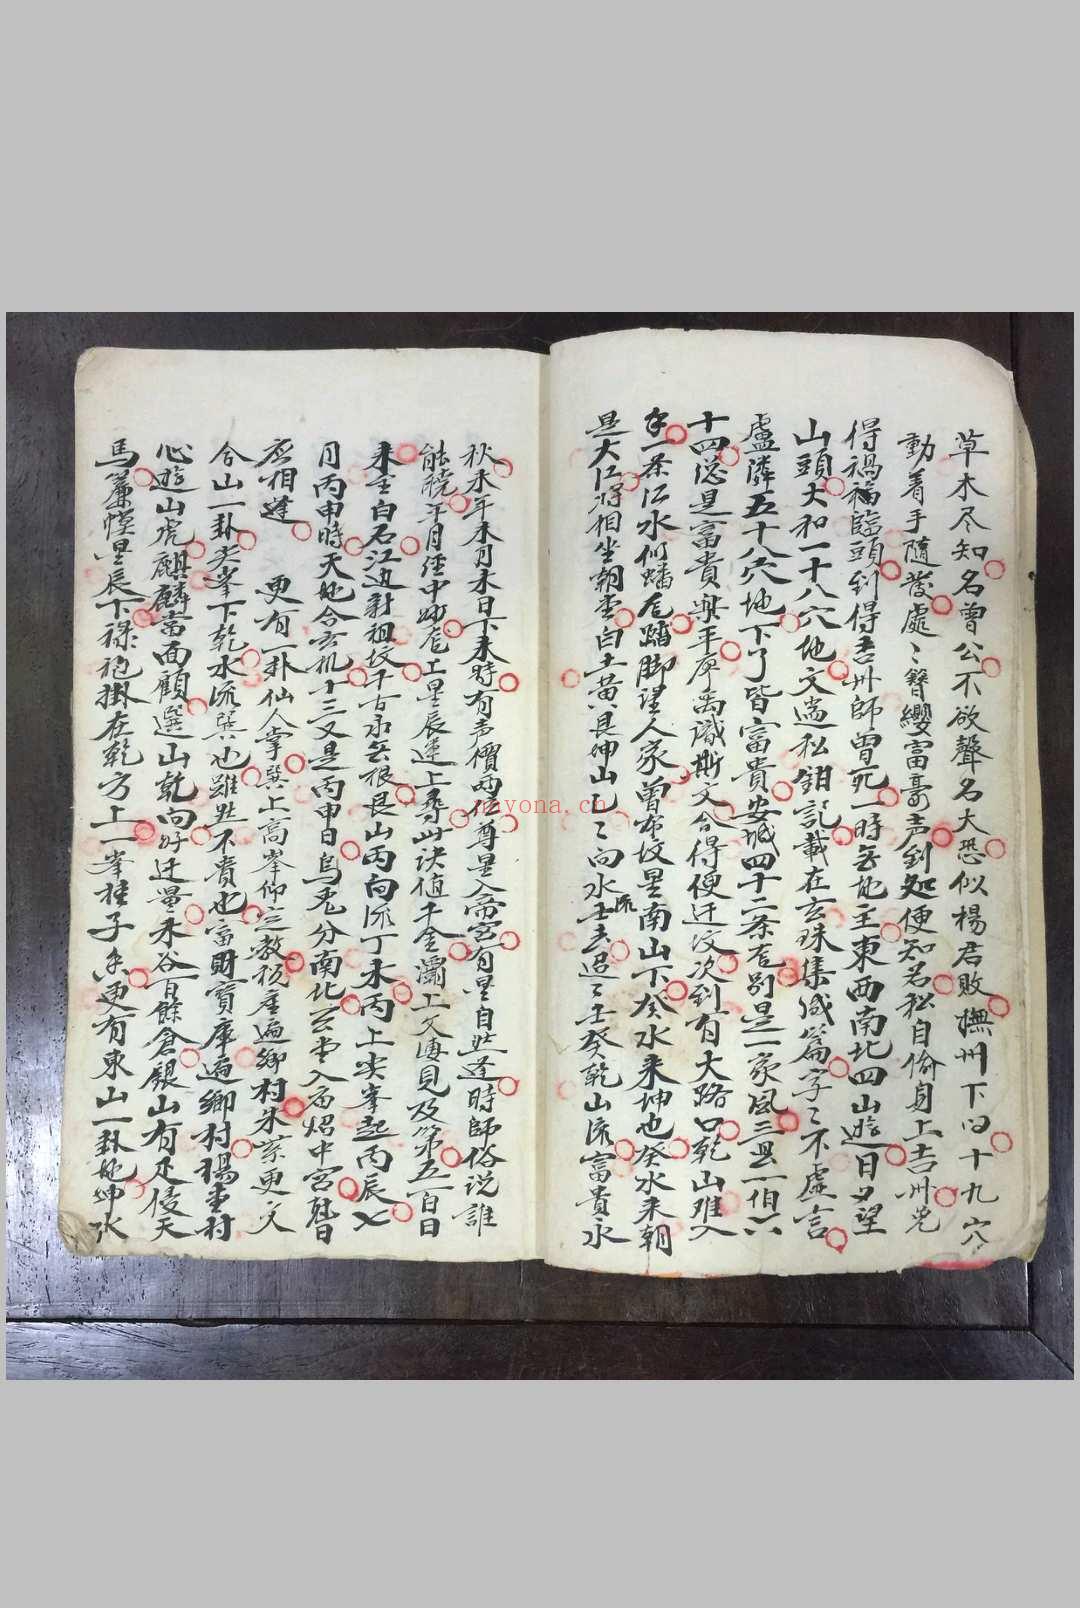 草木尽知名曾公不欲聲名大恐似楊君敗撫州下向十九穴
動着手隨處處〻簪纓富豪声到処便知名松自偷身上吉州党
得禍福臨頭到得吾州師曾死一時無地主東西南北四山遊一日夕望
山頭大和一十八穴地文遄私鉗記載在玄珠集成篇字〻不虛言
盧潾五十八穴地下了皆富貴安城四十二条龙別是一家風三百一佰六
十四總是富貴與平廖禹識斯文合得便迁坟次到有大路口乾山难入
一条江水似蟠龙踏脚望人家曾安坟星南山下癸水来坤也癸水来朝
是大江将相坐朝堂白土黄艮坤山巳〻向水流壬去迢〻壬癸乾山流富貴永
秋未年未月未日下未時有声價两位尊星入斎宫有星自然逢時師俗说誰
能曉年月經中妙龙土星辰運上尋此诀值千金灞上文傳見及第五百日
来至白石江边對祖坟千古永無根艮山丙向流丁未丙上尖峯起丙辰七
月丙申時天地合玄机十三又是丙申日烏兔分南北玄堂入庙炤中宫魁日
应相逢 更有一卦仙人掌巽上高峯仰定教稅產遍鄉村朱紫更文
合山一卦尖峯下乾水流巽也雖然不貴也富財寶庫遍鄉村楊堂村
心遊山虎麒麟當面顧選山乾向好迁量禾谷百餘倉銀山有足侵天
馬簾幙星辰下禄袍掛在乾方上一峯種子息更有東山一卦地坤水
myona.cn